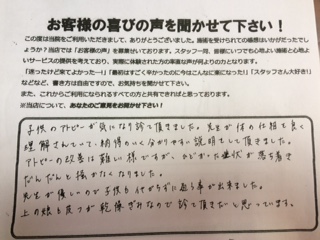 お客様の喜びの声を聞かせて下さい!
この度は当院をご利用いただきまして、ありがとうございました。施術を受けられての感想はいかがだったでし
ょうか?当店では「お客様の声」を募集せいております。スタッフ一同、皆様にいつでも心地よい施術と心地よ
いサービスの提供を考えており、実際に体験された方の率直な声が何よりのものとなります。
「迷ったけど来てよかったー!」「最初はすごく辛かったのに今はこんなに楽になった!」「スタッフさん大好き!」
などなど、書き方は自由ですので、お気持ちを書けせて下さい。
また、これからご利用になられるすべての方と共有できればと思っております。
※当店について、あなたのご意見をお聞かせ下さい!
子供のアトピーが気になり診て頂きました。先生が体の仕組を良く
理解されていて、納得のいく分かりやすい説明をして頂きました。
アトピーの改善は難しい様ですが、ひどかった症状が落ち着き
だんだんと掻かなくなりました。
先生が優しいので子供も
上の娘も皮フが乾燥ぎみなので診て頂きたいと思っています。